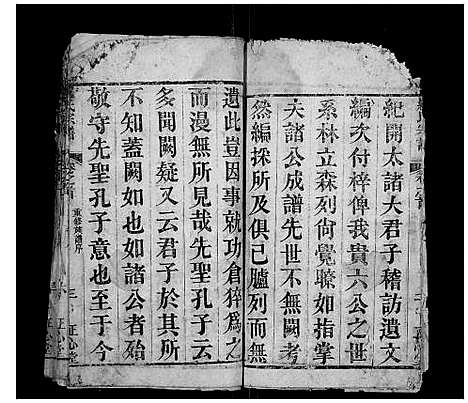 紀開太諸大君子稽訪遺文
編次付梓俾我貴六公之世
系林立森列尙覺瞭如指掌
夫諸公成譜先世不無闕考
然編採所及俱已臚列而無
遺此豈因事就功倉猝爲之
而漫無所見哉先聖孔子云
多聞闕疑又云君子於其所
不知蓋闕如也如諸公者殆
敬守先聖孔子意也至于今
宗譜
卷之首
重修族譜序
正心堂